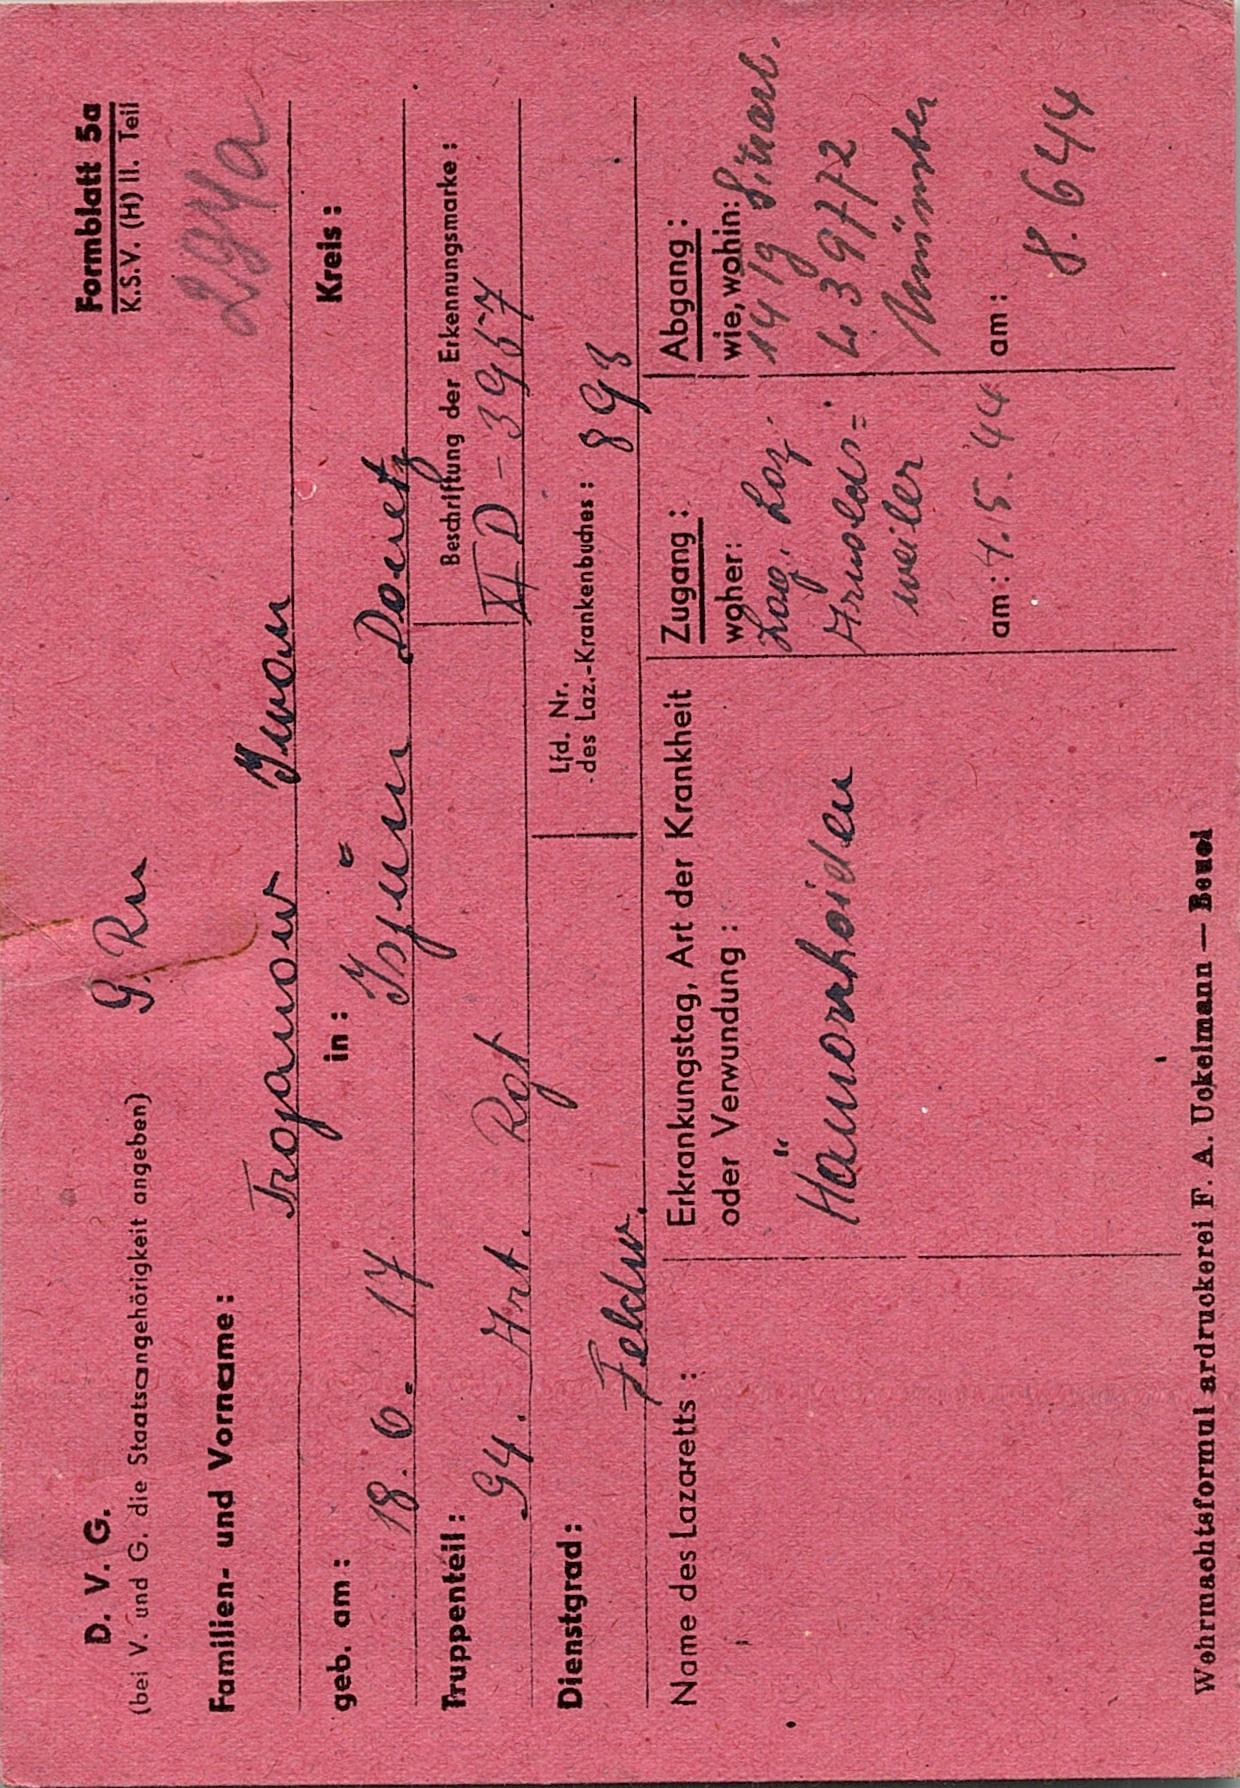 Formblatt 5a
K.S.V. (H) II. Teil
D. V. G.
G. Ru
(bei V. und G. die Staatsangehörigkeit angeben)
294a
Familien- und Vorname: Trojanow Iwan
geb. am: 18. 6. 17 in: Isjüm Donetz Kreis:
Truppenteil: 94. Art. Rgt
Beschriftung der Erkennungsmarke:
XI D - 3957
Dienstgrad: Feldw.
Lfd. Nr.
des Laz.-Krankenbuches: 893
Name des Lazaretts:
Erkrankungstag, Art der Krankheit
oder Verwundung:
Hämorrhoiden
Zugang:
woher:
Lag. Laz.
Arnolds=
weiler
am: 4.5.44
Abgang:
wie, wohin:
am:
8.644
Wehrmachtsformulardruckerei F. A. Uckelmann — Beuel